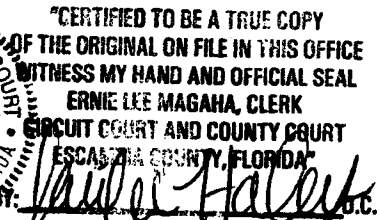 "CERTIFIED TO BE A TRUE COPY
OF THE ORIGINAL ON FILE IN THIS OFFICE
WITNESS MY HAND AND OFFICIAL SEAL
ERNIE LEE MAGAHA, CLERK
CIRCUIT COURT AND COUNTY COURT
ESCAMBIA COUNTY, FLORIDA"
D.C.
COURT